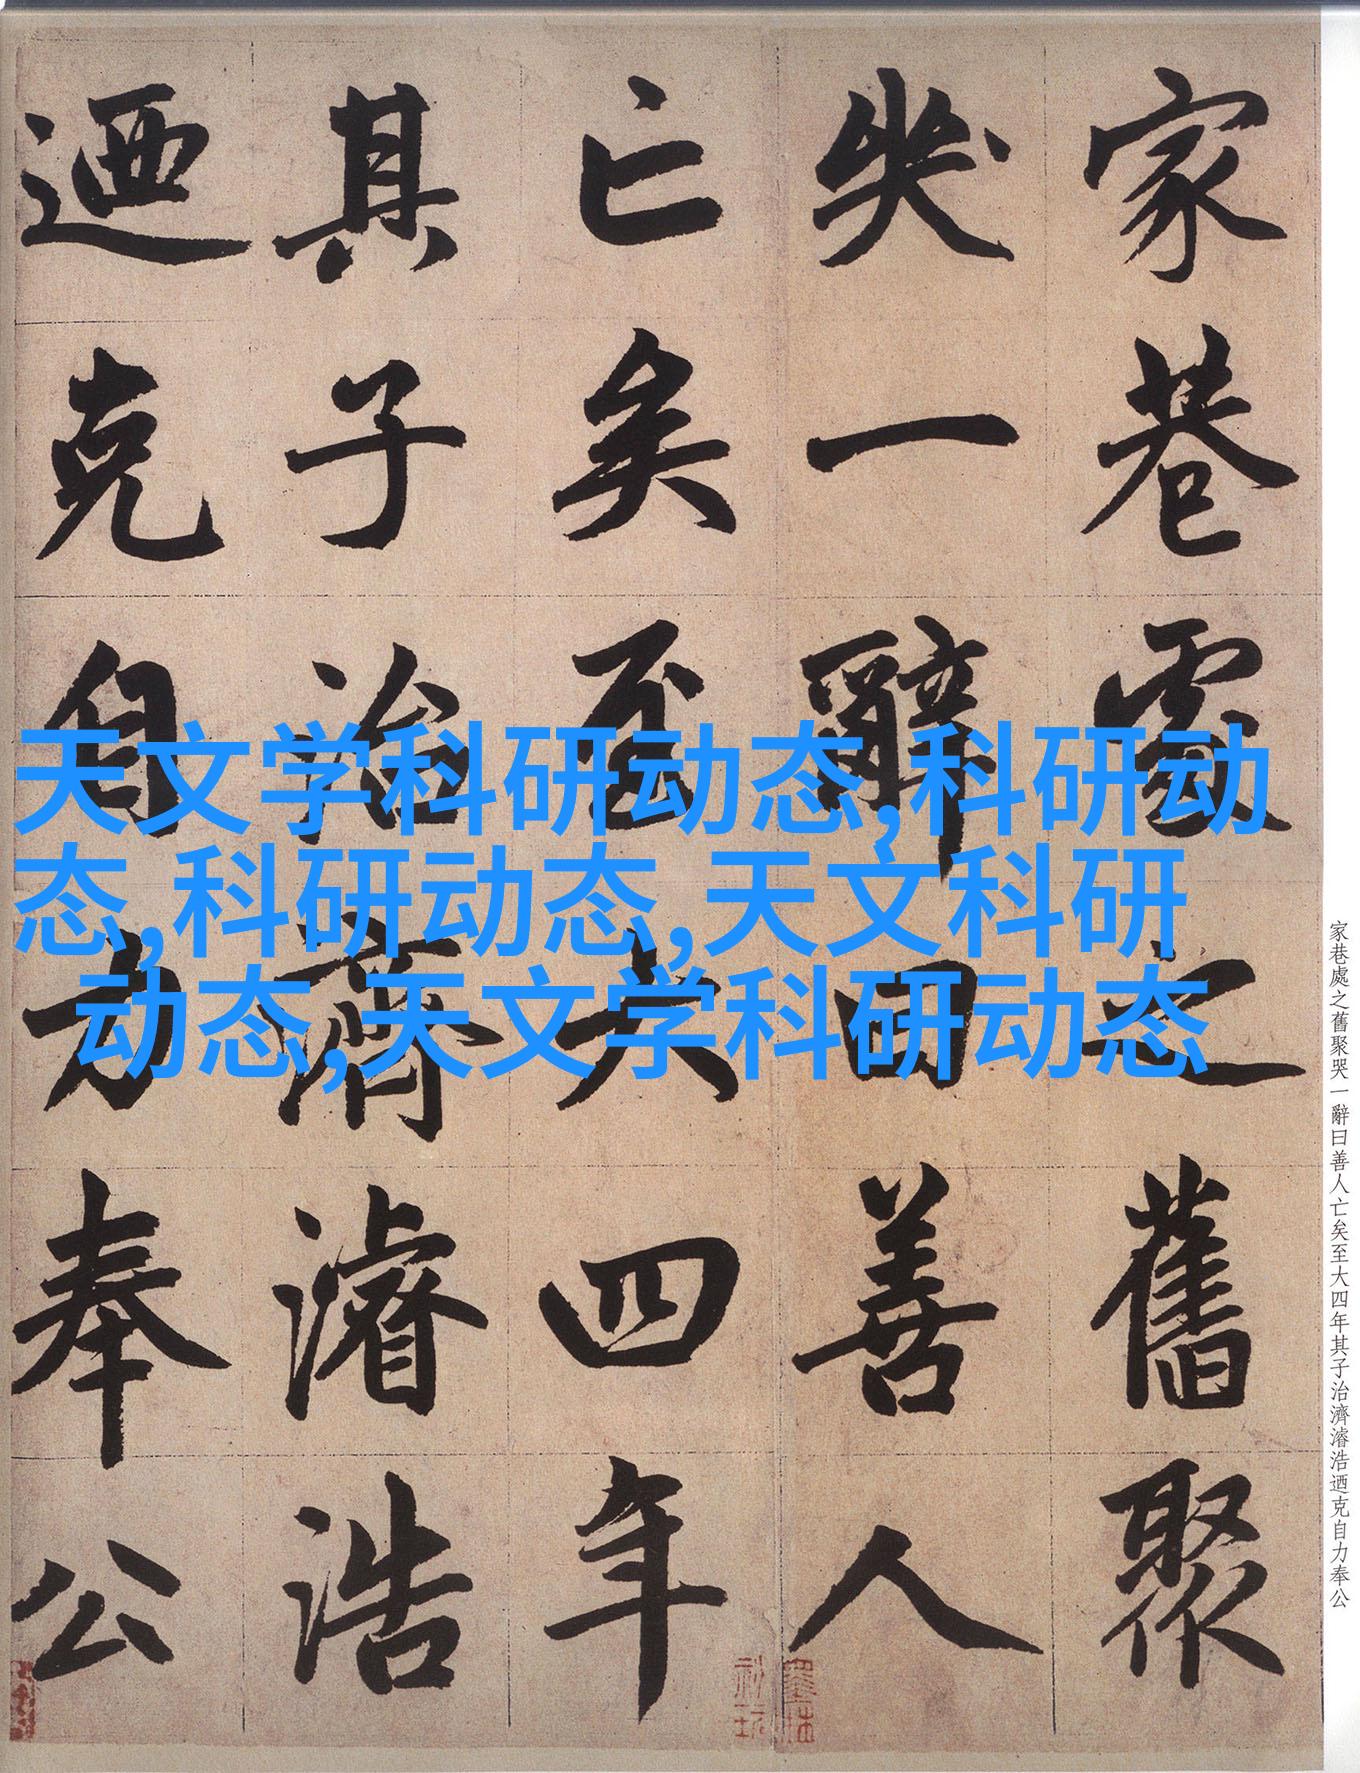 家巷處之舊聚
哭一辭曰善人
亡矣至大四年
其子治濟濬浩
迺克自力奉公
天文学科研动态,科研动
态,科研动态,天文科研
动态,天文学科研动态
家巷處之舊聚哭一辭曰善人亡矣至大四年其子治濟濬浩迺克自力奉公
墨林
秘玩